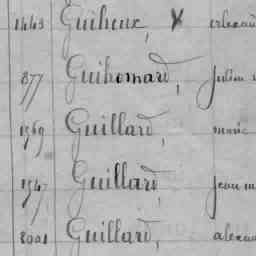 1443 Guiheux, X
877 Guihomard, Julien
1569 Guillard, marie
1547 Guillard, jean m
8001 Guillard, alexan